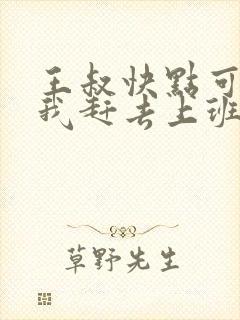 王叔快點可
我赶去上班
草野先生